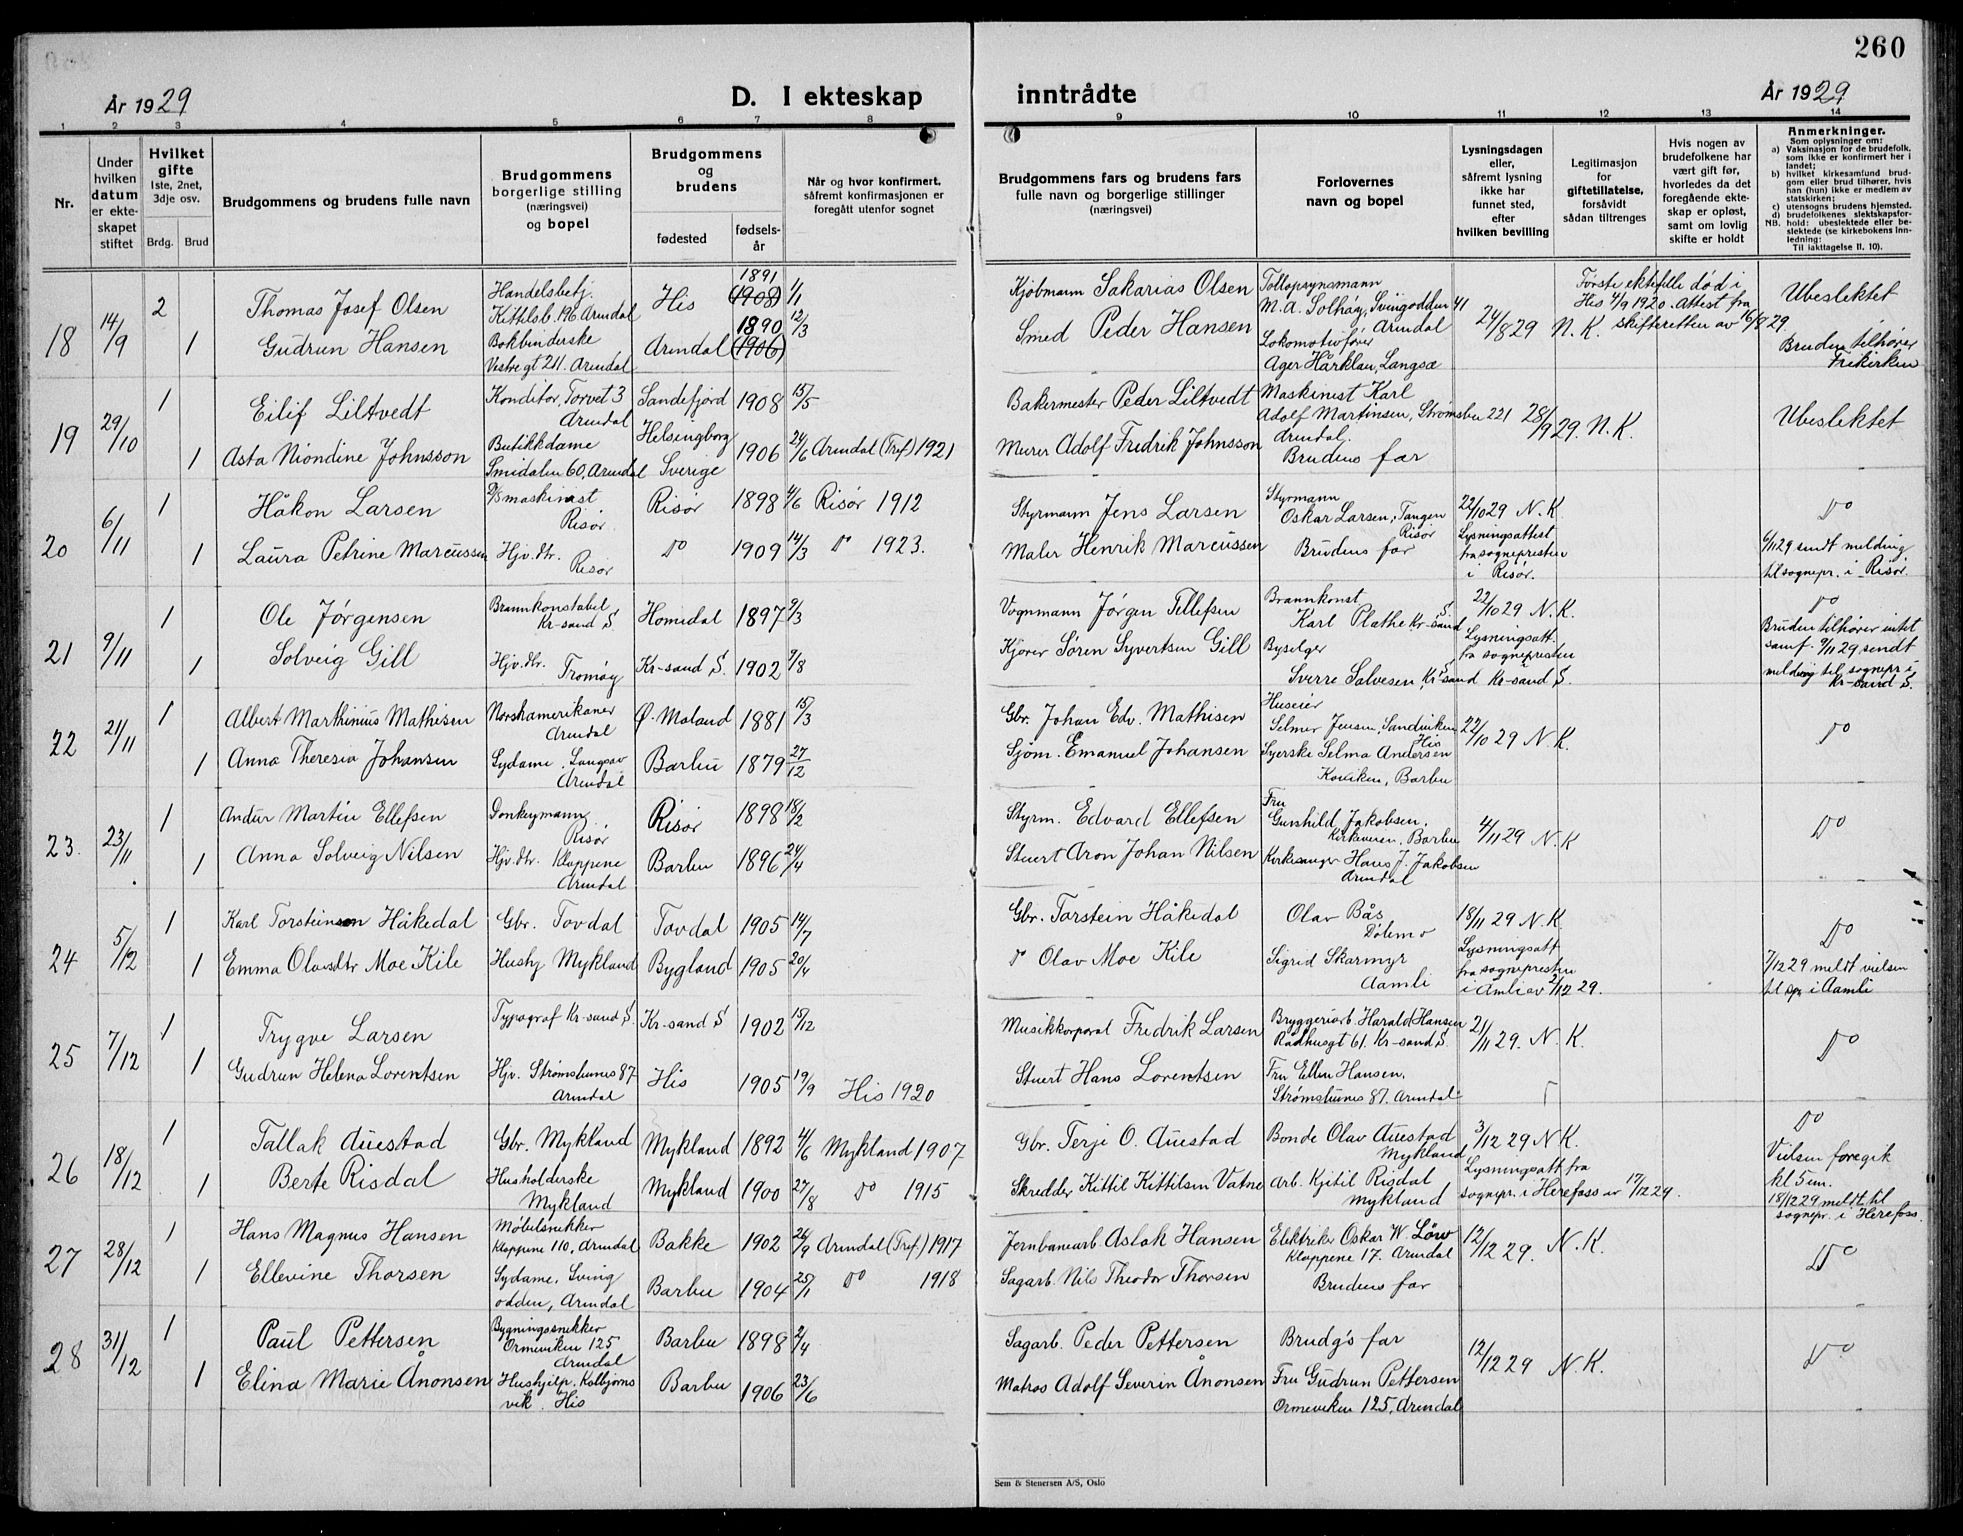 260
År 1929
D. I ekteskap inntrådte
År 1929
1 2 3 4 5 6 7 8 9 10 11 12 13 14
Nr.
Under hvilken datum er ekteskapet stiftet
Hvilket gifte
1ste, 2net, 3dje osv.
Brdg. Brud
Brudgommens og brudens fulle navn
Brudgommens borgerlige stilling (næringsvei) og bopel
Brudgommens og brudens
fødested
fødselsår
Når og hvor konfirmert, såfremt konfirmasjonen er foregått utenfor sognet
Brudgommens fars og brudens fars fulle navn og borgerlige stillinger (næringsvei)
Forlovernes navn og bopel
Lysningsdagen eller, såfremt lysning ikke har funnet sted, efter hvilken bevilling
Legitimasjon for giftetillatelse, forsåvidt sådan tiltrenges
Hvis nogen av brudefolkene har vært gift før, hvorledes da det foregående ekteskap er opløst, samt om lovlig skifte er holdt
Anmerkninger.
Som oplysninger om:
a) Vaksinasjon for de brudefolk, som ikke er konfirmert her i landet;
b) hvilket kirkesamfund brudgom eller brud tilhører, hvis han (hun) ikke er medlem av statskirken;
c) utensogns brudens hjemsted.
d) brudefolkenes slektskapsforhold: ubeslektede eller beslektede (se kirkebokens Innledning:
NB. Til iakttagelse II, 10).
18 14/9 2 Thomas Josef Olsen Handelsbetj. Kittelsb. 196 Arendal His 1891 (1908) 1/1 Kjøbmann Sakarias Olsen Tollopsynsmann M. A. Solhøy, Svingodden 41 Arendal 24/8 29 N. K. Første ektefelle død i His 4/9 1920. Attest fra skifteretten av 16/8 29. Ubeslektet
1 Gudrun Hansen Bokbinderske Vestregt 211. Arendal Arendal 1890 (1906) 12/3 Smed Peder Hansen Lokomotivfører Ager Harklau, Langsæ Bruden tilhører Frikirken
19 29/10 1 Eilif Liltvedt Konditor, Torvet 3 Arendal Sandefjord 1908 15/5 Bakermester Peder Liltvedt Maskinist Karl Adolf Martinsen, Strømsbu 221 Arendal. 28/9 29. N. K. Ubeslektet
1 Asta Niondine Johnsson Butikkdame Smidalen 60, Arendal Helsingborg Sverige 1906 24/6 Arendal (Tref.) 1921 Murer Adolf Fredrik Johnsson Brudens far
20 6/11 1 Håkon Larsen D/S maskinist Risør. Risør 1898 4/6 Risør 1912 Styrmann Jens Larsen Styrmann Oskar Larsen, Tangen Risør 22/10 29 N. K. Do
1 Laura Petrine Marcussen Hjv. dtr. Risør Do 1909 14/3 Do 1923. Maler Henrik Marcussen Brudens far Lysningsattest fra sognepresten i Risør. 6/11 29 sendt melding til sognepr. i Risør.
21 9/11 1 Ole Jørgensen Brannkonstabel Kr-sand S Homidal 1897 9/3 Vognmann Jørgen Tellefsen Brannkonst Karl Plathe Kr-sand S. 22/10 29 N. K. Do
1 Solveig Gill Hjv. dtr. Tromøy Kr-sand S. 1902 7/8 Kjører Søren Syvertsen Gill Byselger Sverre Salvesen Kr-sand S Lysningsatt. fra sognepresten i Kr-sand S. Bruden tilhører intet samf. 9/11 29 sendt melding til sognepr i Kr-sand S.
22 21/11 1 Albert Marthinius Mathisen Norskamerikaner Arendal Ø. Moland 1881 15/3 Gbr. Johan Edv. Mathisen Huseier Selmer Jensen, Sandviken His 22/10 29 N. K. Do
1 Anna Theresia Johansen Sydame, Langsæv Arendal Barbu 1879 27/12 Sjøm. Emanuel Johansen Syerske Selma Andersen Barbu
23. 23/11 1 Andur Martin Ellefsen Donkeymann Risør Risør 1898 18/2 Styrm. Edvard Ellefsen Fru Gunhild Jakobsen, Kirkeveien, Barbu 4/11 29 N. K Do
1 Anna Solveig Nilsen Hjv. dtr. Kloppene Arendal Barbu 1896 24/4 Stuert Aron Johan Nilsen Kirkesanger Hans J. Jakobsen Arendal
24 5/12 1 Karl Torsteinson Håkedal Gbr. Tovdal Tovdal 1905 14/7 Gbr. Torstein Håkedal Olav Bås Dølemo 18/11 29 N. K. Do
1 Emma Olavsdtr Moe Kile Hushj Mykland Bygland 1905 20/4 Do Olav Moe Kile Sigrid Skarmyr Aamli Lysningsatt fra sognepresten i Åmli av 2/12 29. 7/12 29 meldt vielsen til spr i Aamli
25 7/12 1 Trygve Larsen Typograf Kr-sand S. Kr-sand S 1902 15/12 Musikkorporal Fredrik Larsen Bryggeriarb. Harald Hansen Rådhusgt 61. Kr-sand S. 21/11 29. N. K. Do
1 Gudrun Helena Lorentsen Hjv. Strømsbunes 87 Arendal His 1905 19/9 His 1920 Stuert Hans Lorentsen Fru Ellen Hansen, Strømsbunes 87. Arendal
26 18/12 1 Tallak Auestad Gbr. Mykland Mykland 1892 4/6 Mykland 1907 Gbr. Terje O. Auestad Bonde Olav Auestad Mykland 3/12 29 N. K. Do
1 Berte Risdal Husholderske Mykland Mykland 1900 27/8 Do 1915 Skredder Kittil Kittilsen Vatne Arb. Kjitil Risdal Mykland Lysningsatt fra sognepr. i Herefoss av 17/12 29. Vielsen foregik kl 5 em. 18/12 29 meldt til sognepr. i Herefoss.
27 28/12 1 Hans Magnus Hansen Møbelsnekker Kloppene 110, Arendal Bakke 1902 26/9 Arendal (Tref.) 1917 Jernbanearb. Aslak Hansen Elektriker Oskar W. Löw Kloppene 17. Arendal 12/12 29. N. K. Do
1 Ellevine Thorsen Sydame, Svingodden, Arendal Barbu 1904 25/1 Do 1918 Sagarb. Nils Theodor Thorsen Brudens far
28 31/12 1 Paul Pettersen Bygningssnekker Ormeviken 125 Arendal Barbu 1898 2/4 Sagarb. Peder Pettersen Brudg's far 12/12 29 N. K. Do
1 Elina Marie Ånonsen Hushjelp. Kolbjørnsvik. His Barbu 1906 23/6 Matros Adolf Severin Ånonsen Fru Gudrun Pettersen Ormeviken 125, Arendal
Sem & Stenersen A/S, Oslo